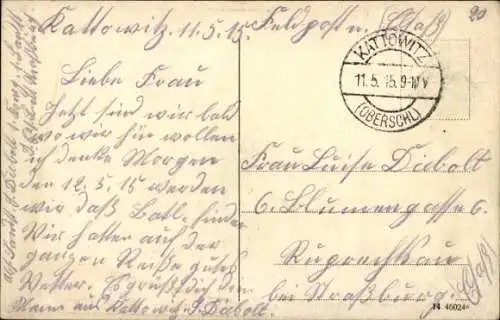 Kattowitz, 11.5.15. Feldpost n. (Elsaß)
20
KATTOWITZ
11.5.15.9-10V
(OBERSCHL)
Liebe Frau
Jetzt sind wir bald
wo wir hie wollen
ich denke Morgen
den 12.5.15 werden
wir daß Batl. finden
Wir hatten auf der
ganzen Reise gutes
Wetter. Es grüßt dich dein
Mann aus Kattowitz. S. Diebolt.
Frau Luise Diebolt
6. Blumengasse 6.
Ruprechtsau
bei Straßburg. (Elsaß)
14 46024